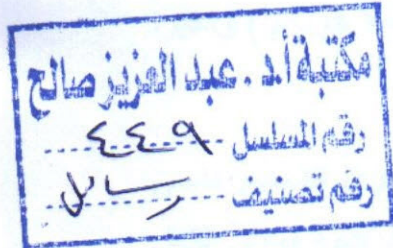 مكتبة أ.د. عبد العزيز صالح
رقم المسلسل ٤٤٩
رقم تصنيف رسائل